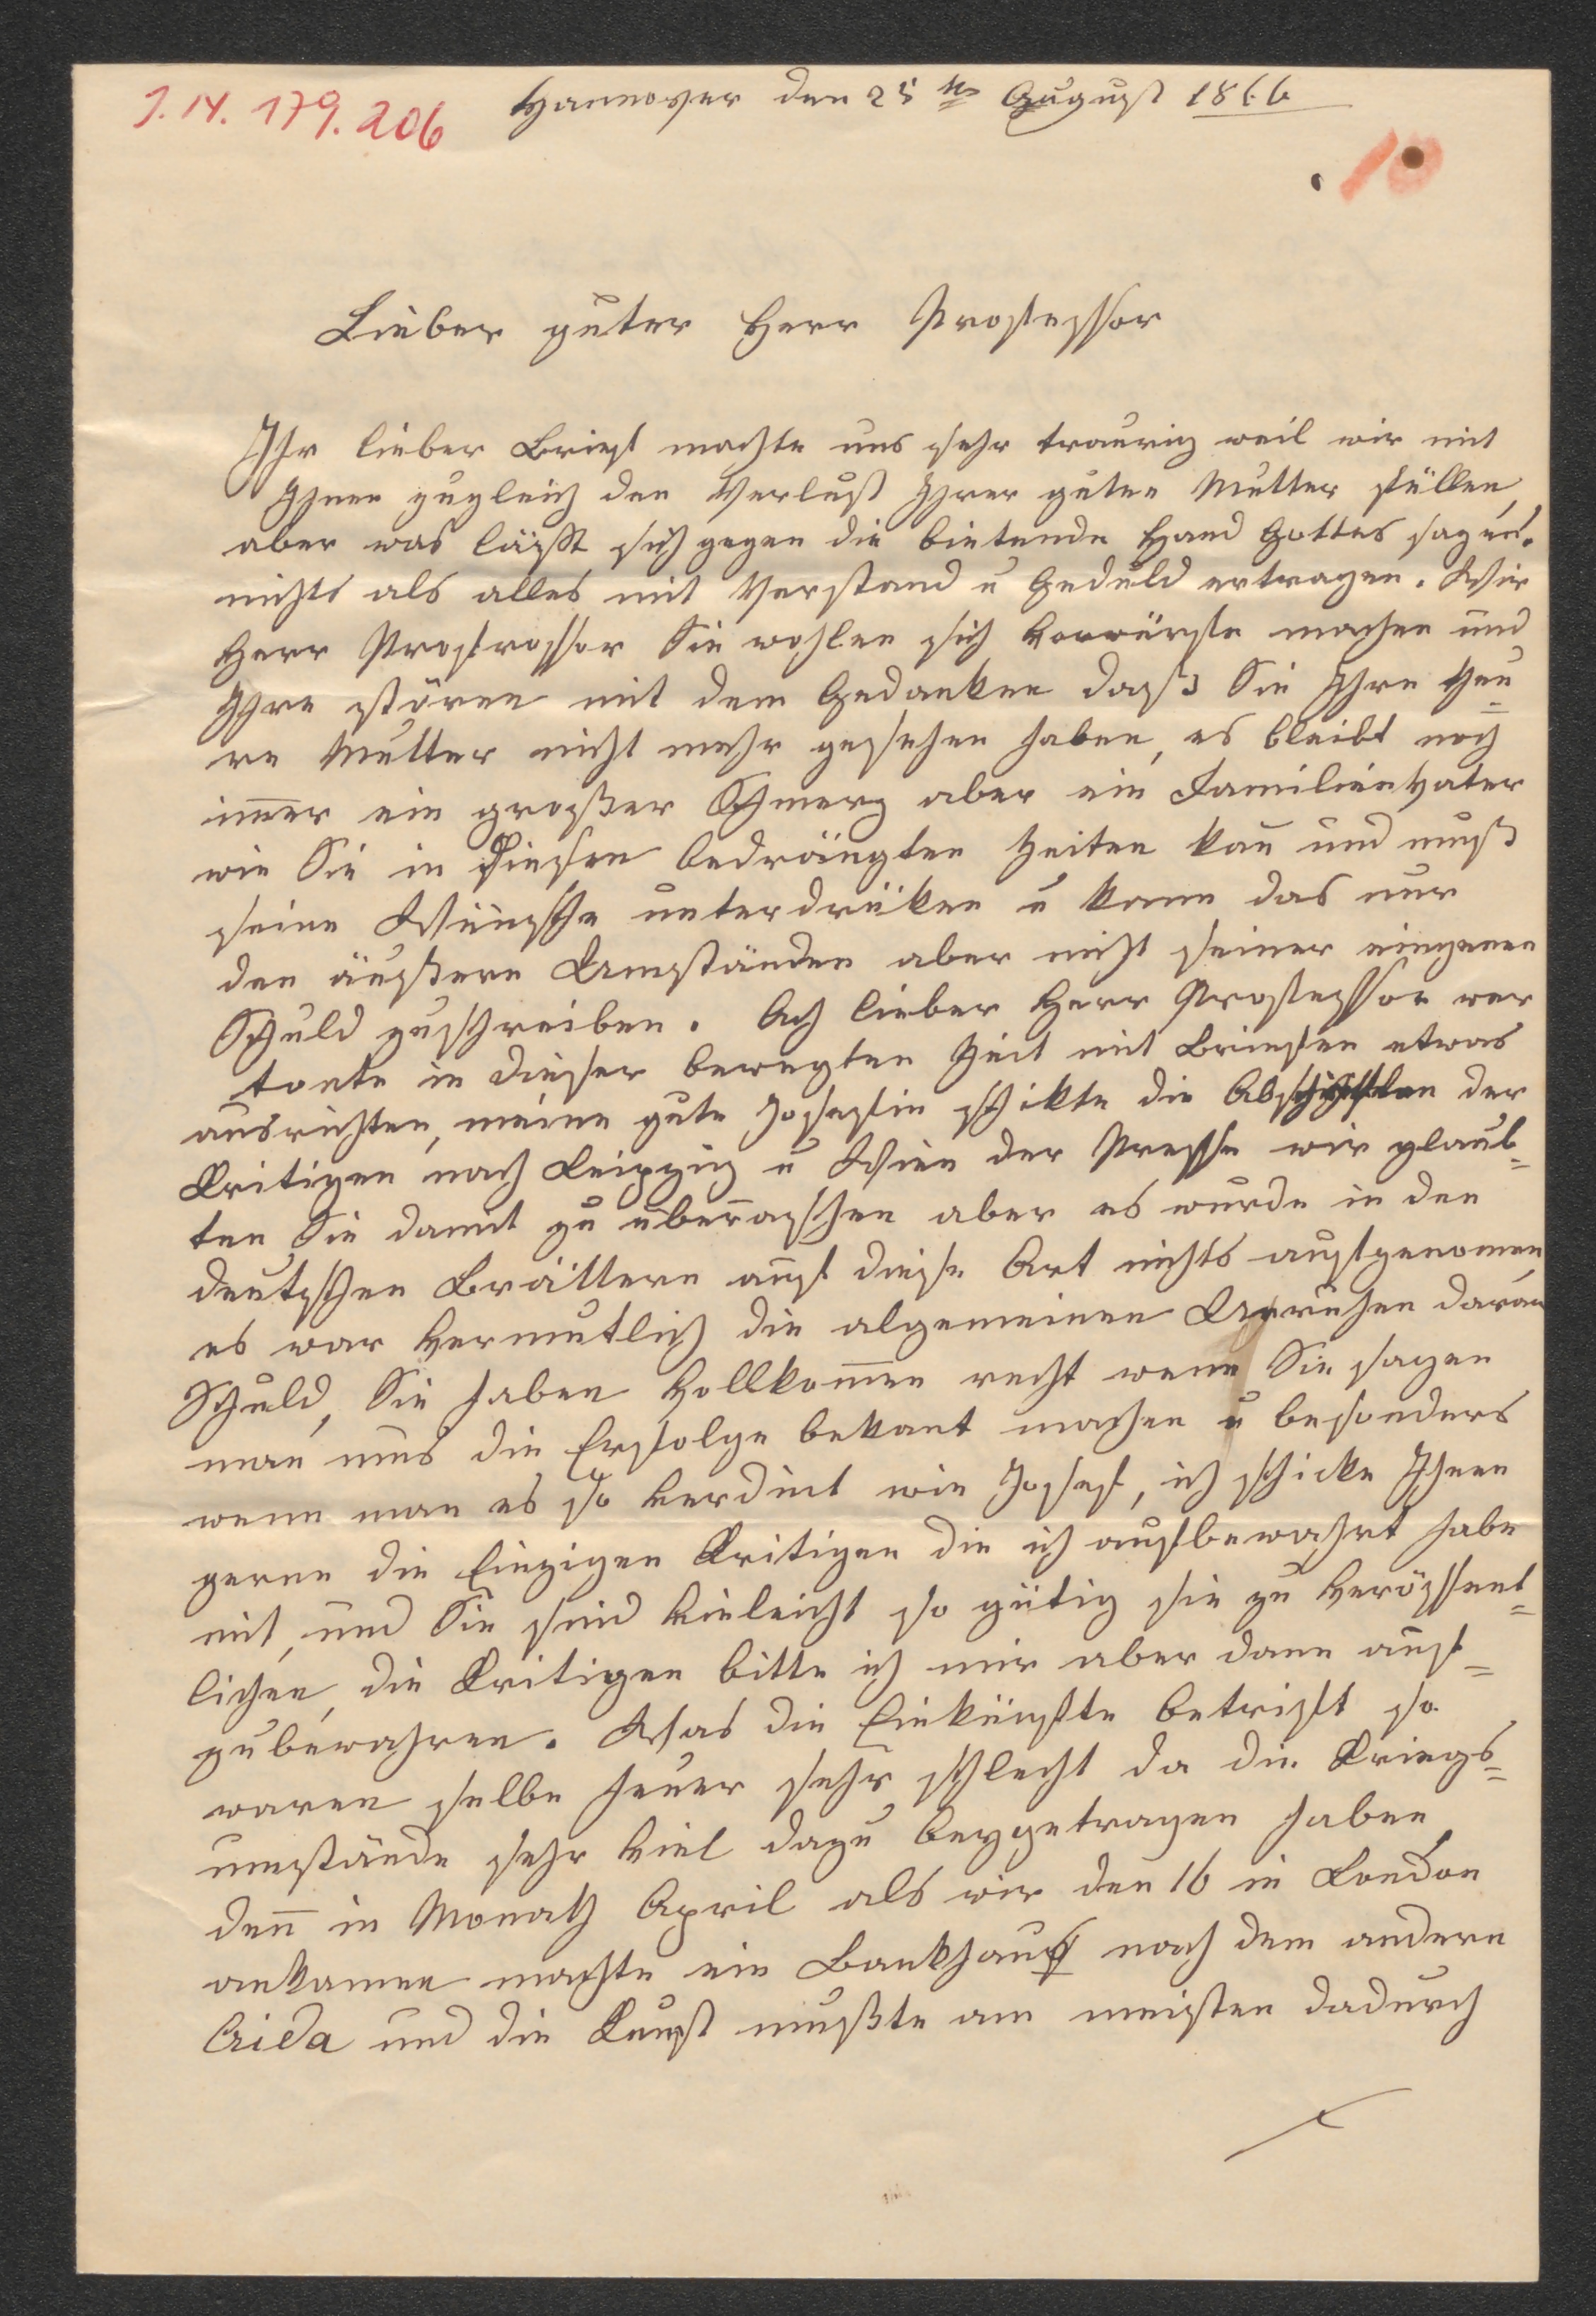 J.N. 179.206
Hannover den 25ten August 1866
10
Lieber guter Herr Professor
Ihr lieber Brief machte uns sehr traurig weil wir mit
Ihnen zugleich den Verlust Ihrer guten Mutter füllen,
aber was läßt sich gegen die bietende Hand Gottes sagen.
nichts als alles mit Verstand u Geduld ertragen. Wie
Herr Profrossor Sie wohlen sich Vorwürfe machen und
Ihre stören mit dem Gedanken daß Sie Ihre theu
re Mutter nicht mehr gesehen haben, es bleibt noch
im̄er ein großer Schmerz aber ein Familienvater
wie Sie in diesen bedrängten Zeiten kan̄ und muß
seine Wünsche unterdrüken u kann das nur
den äußern Umständen aber nicht seiner eingenen
Schuld zuschreiben. Ach lieber Herr Professor wer
konte in dieser bewegten Zeit mit Briefen etwas
ausrichten, meine gute Josefin schikte die Abschriften der
Kritigen nach Leipzig u Wien der Presse wir glaub=
ten Sie damit zu überraschen aber es wurde in den
deutschen Brättern auf diese Art nichts aufgenomen
es war vermutlich die algemeinen Unruhen daran
Schuld, Sie haben vollkom̄en recht wenn Sie sagen
man mus die Erfolge bekant machen u besonders
wenn man es so verdint wie Josef, ich schicke Ihnen
gerne die Einzigen Kritigen die ich aufbewahrt habe
mit, und Sie sind vieleicht so gütig sie zu veröffent=
lichen, die Kritigen bitte ich mir aber dann auf=
zubewahren. Was die Einkünfte betrifft so
waren selbe heuer sehr schlecht da die Kriegs=
umstände sehr viel dazu beygetragen haben,
den̄ in Monath April als wir den 16 in London
ankamen machte ein Bankhaus nach dem andern
Crida und die Kunst mußte am meisten dadurch